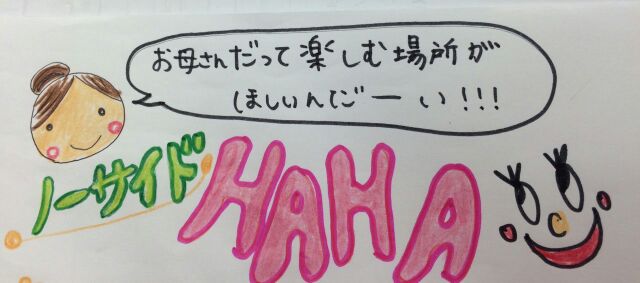 お母さんだって楽しむ場所が
ほしいんでごーい!!!
ノーサイド HAHA